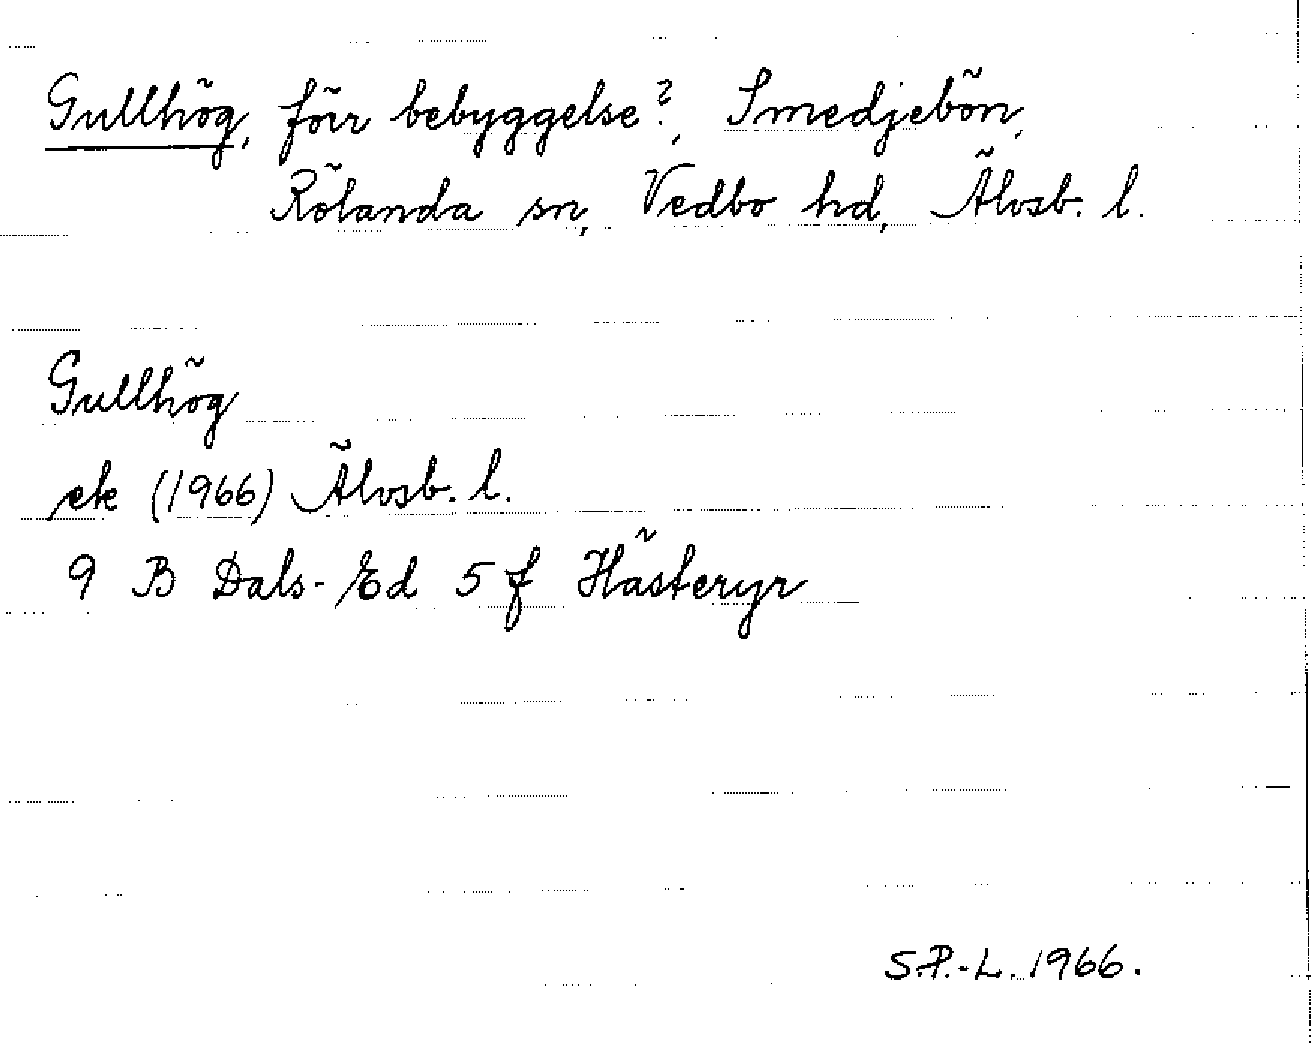 Gullhög, förr bebyggelse?, Smedjebön,
Rölanda sn, Vedbo hd, Älvsb. l.
Gullhög
ek (1966) Älvsb. l.
9 B Dals-Ed 5 f Hästeryr
S.P.-L. 1966.